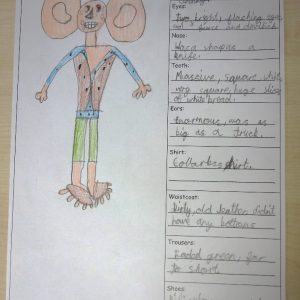 Eyes:
bright, flashing
fierce and
Nose:
Was a shaping a
knife.
Teeth:
Massive, square white
very square, huge slices
of white bread.
Ears:
Enarmous, was as
big as a truck.
Shirt:
Collarless shirt.
Waistcoat:
Dirty, old leather didn't
have any buttons
Trousers:
Faded green, far
to short.
Shoes: